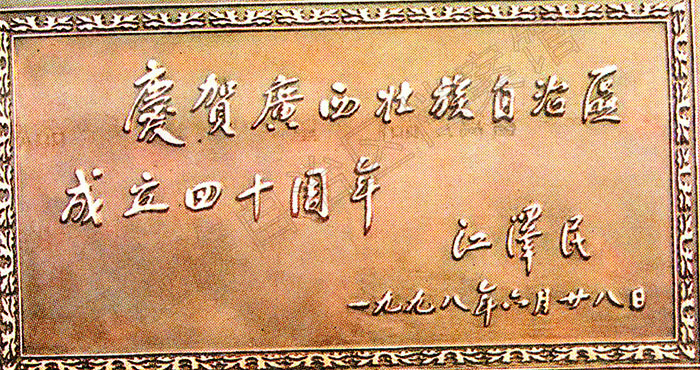 慶賀廣西壯族自治區
成立四十周年
江澤民
一九九八年六月廿八日